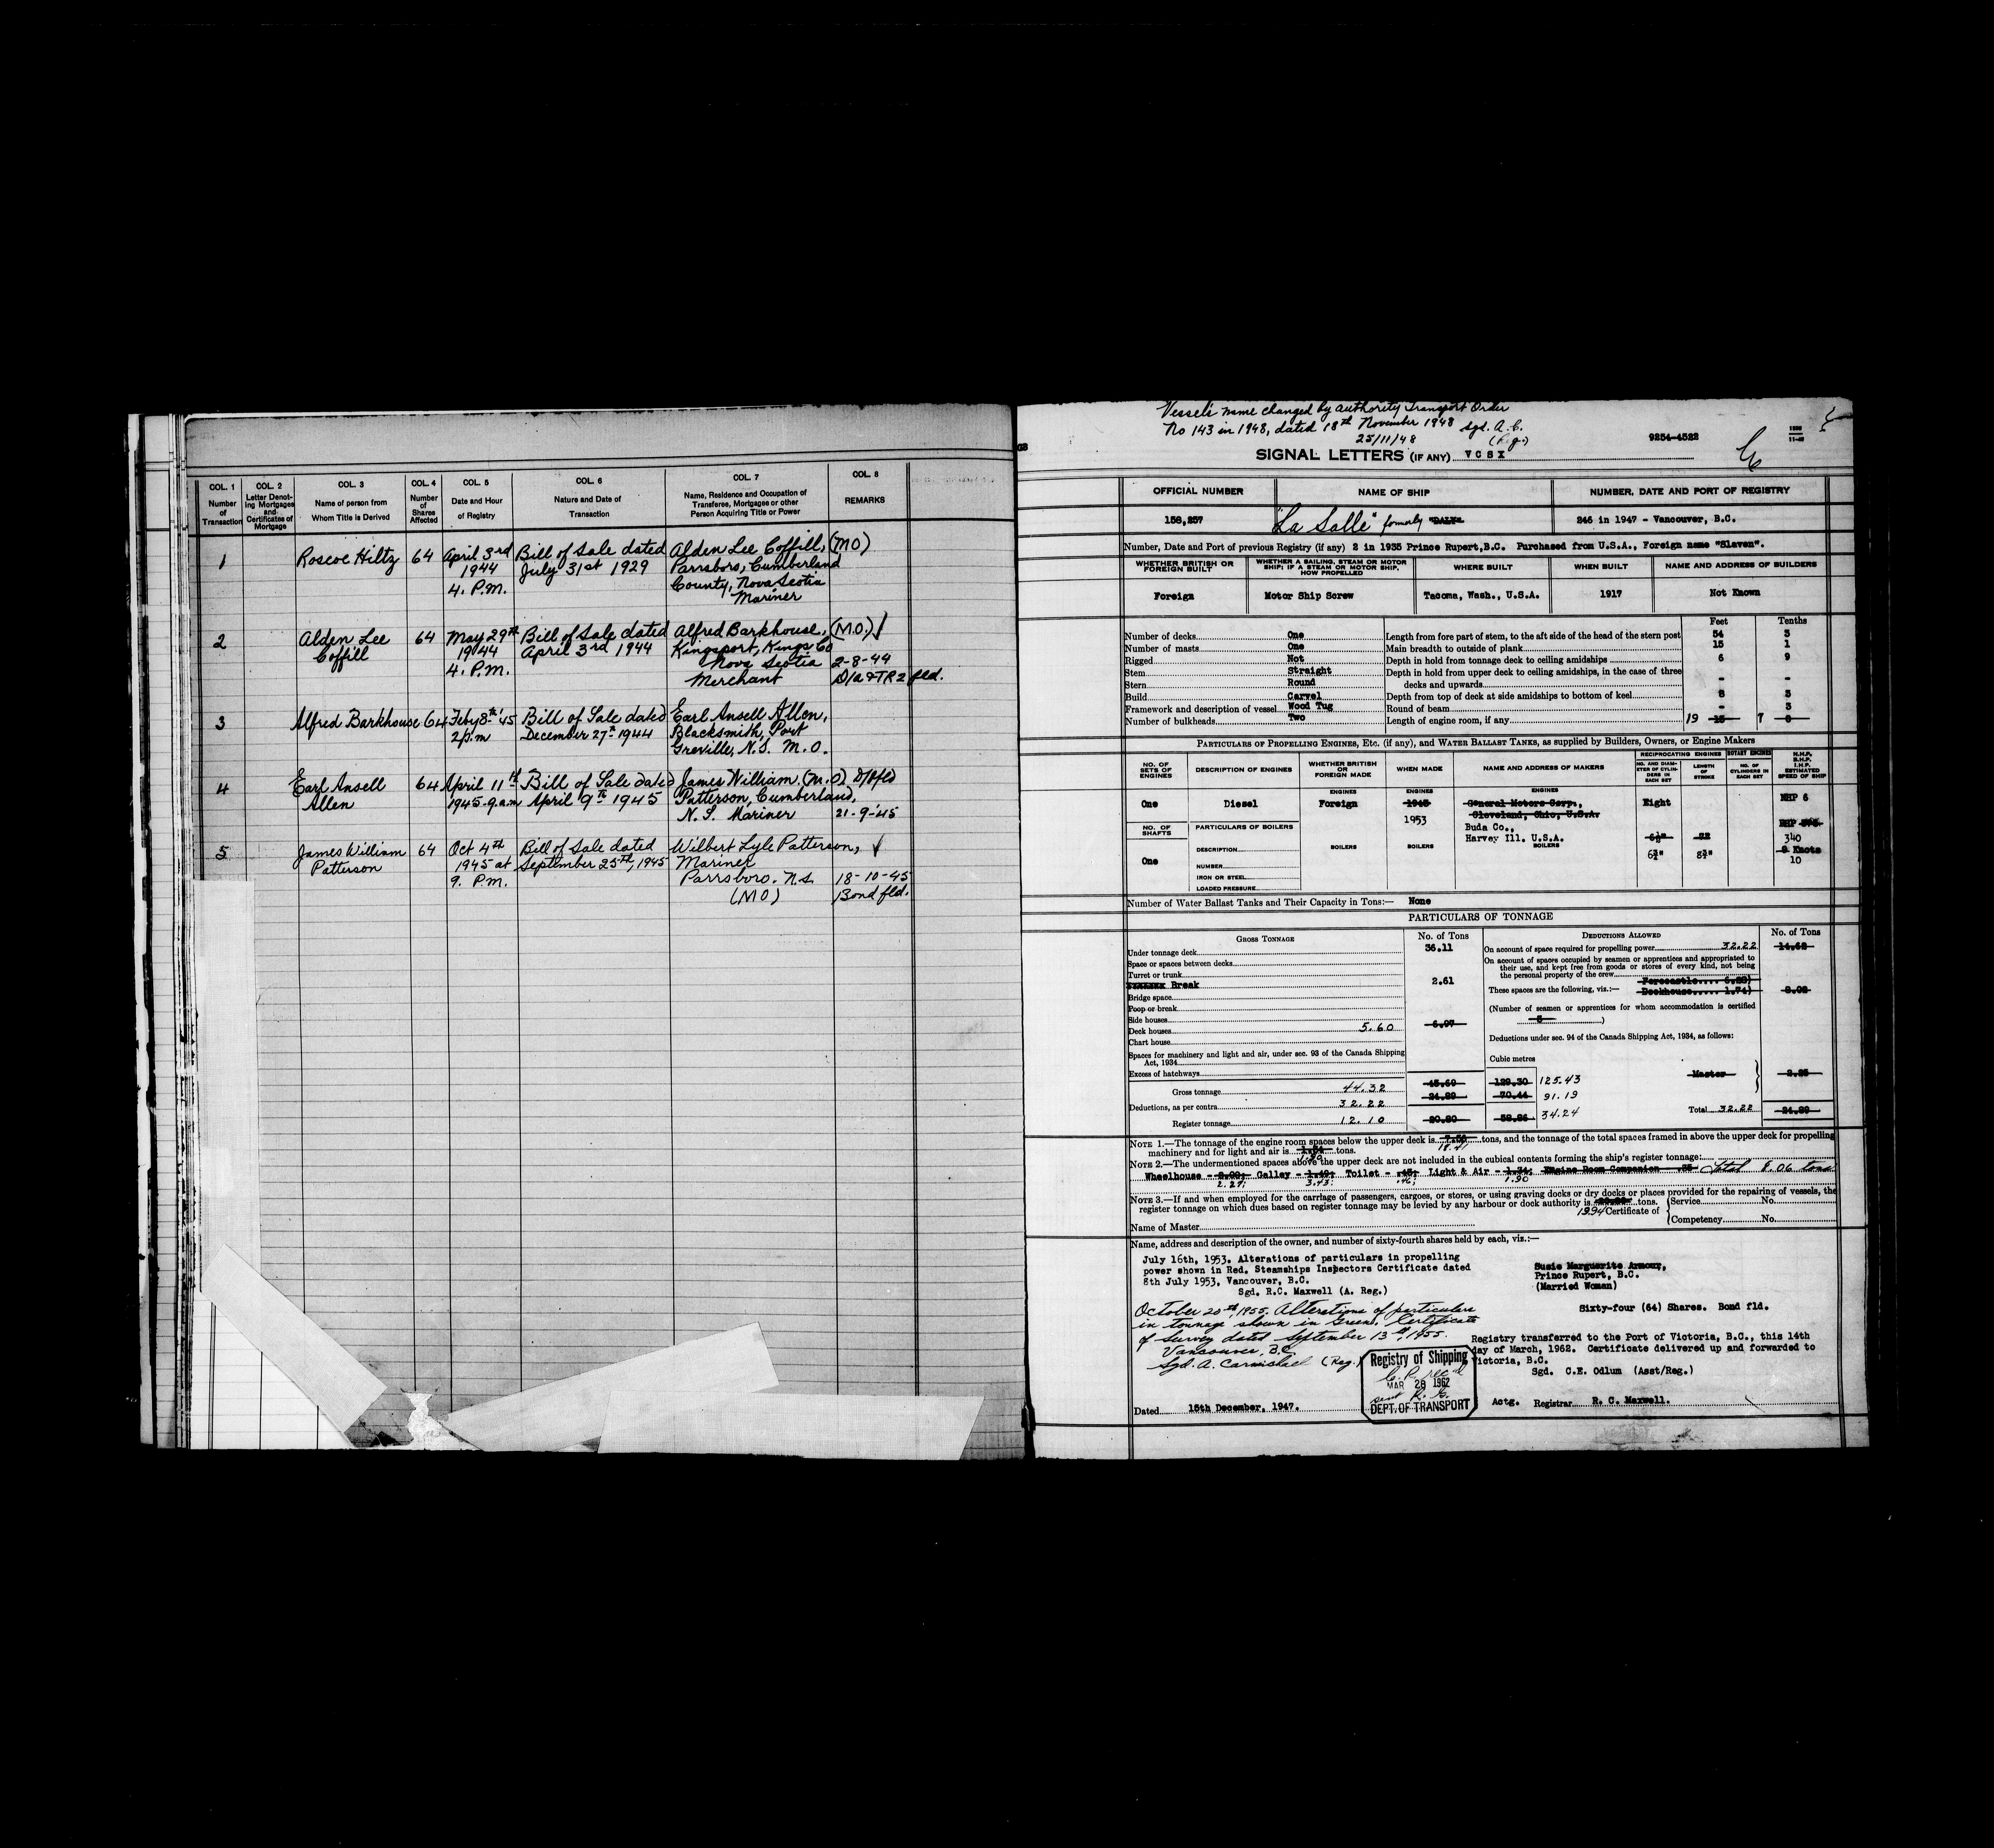 COL. 1 COL. 2 COL. 3 COL. 4 COL. 5 COL. 6 COL. 7 COL. 8
Number of Transaction
Letter Denoting Mortgages and Certificates of Mortgage
Name of person from Whom Title is Derived
Number of Shares Affected
Date and Hour of Registry
Nature and Date of Transaction
Name, Residence and Occupation of Transferee, Mortgagee or other Person Acquiring Title or Power
REMARKS
1 Roscoe Hiltz 64 April 3rd Bill of Sale dated Alden Lee Coffill, (MO)
1944 July 31st 1929 Parrsboro, Cumberland
4. P.M. County, Nova Scotia
Mariner
2 Alden Lee 64 May 29th Bill of Sale dated Alfred Barkhouse, (M.O.) √
Coffill 1944 April 3rd 1944 Kingsport, Kings Co
4. P.M. Nova Scotia 2-8-44
Merchant D/a & TR2 fld.
3 Alfred Barkhouse 64 Feby 8th '45 Bill of Sale dated Earl Ansell Allen,
2 p.m December 27th 1944 Blacksmith, Port
Greville, N.S. M.O.
4 Earl Ansell 64 April 11th Bill of Sale dated James William (M.O) D/Pfld
Allen 1945-9.a.m April 9th 1945 Patterson, Cumberland,
N.S. Mariner 21-9-'45
5 James William 64 Oct 4th Bill of Sale dated Wilbert Lyle Patterson, √
Patterson 1945 at September 25th, 1945 Mariner
9. P.M. Parrsboro. N.S. 18-10-45
(MO) Bond fld.
Vessel's name changed by authority Transport Order
No 143 in 1948, dated 18th November 1948 sgd. A.C.
25/11/48 (Reg.)
9254-4522
SIGNAL LETTERS (IF ANY) V C S X
OFFICIAL NUMBER NAME OF SHIP NUMBER, DATE AND PORT OF REGISTRY
158,257 "La Salle" formerly "DALY" 246 in 1947 - Vancouver, B.C.
Number, Date and Port of previous Registry (if any) 2 in 1935 Prince Rupert, B.C. Purchased from U.S.A., Foreign name "Slaven".
WHETHER BRITISH OR FOREIGN BUILT
WHETHER A SAILING, STEAM OR MOTOR SHIP; IF A STEAM OR MOTOR SHIP, HOW PROPELLED
WHERE BUILT WHEN BUILT NAME AND ADDRESS OF BUILDERS
Foreign Motor Ship Screw Tacoma, Wash., U.S.A. 1917 Not Known
Feet Tenths
Number of decks One Length from fore part of stem, to the aft side of the head of the stern post 54 3
Number of masts One Main breadth to outside of plank 15 1
Rigged Not Depth in hold from tonnage deck to ceiling amidships 6 9
Stem Straight Depth in hold from upper deck to ceiling amidships, in the case of three
Stern Round decks and upwards - -
Build Carvel Depth from top of deck at side amidships to bottom of keel 8 3
Framework and description of vessel Wood Tug Round of beam - 3
Number of bulkheads Two Length of engine room, if any 19 15 7 0
PARTICULARS OF PROPELLING ENGINES, ETC. (if any), and WATER BALLAST TANKS, as supplied by Builders, Owners, or Engine Makers
NO. OF SETS OF ENGINES
DESCRIPTION OF ENGINES
WHETHER BRITISH OR FOREIGN MADE
WHEN MADE
NAME AND ADDRESS OF MAKERS
RECIPROCATING ENGINES
NO. AND DIAMETER OF CYLINDERS IN EACH SET
LENGTH OF STROKE
ROTARY ENGINES
NO. OF CYLINDERS IN EACH SET
N.H.P. B.H.P. I.H.P. ESTIMATED SPEED OF SHIP
ENGINES ENGINES ENGINES
One Diesel Foreign 1945 General Motors Corp., Eight NHP 6
1953 Cleveland, Ohio, U.S.A.
NO. OF SHAFTS PARTICULARS OF BOILERS Buda Co.,
DESCRIPTION BOILERS BOILERS Harvey Ill. U.S.A. 340
BOILERS 8 Knots
One 6¾" 8¾" 10
NUMBER
IRON OR STEEL
LOADED PRESSURE
Number of Water Ballast Tanks and Their Capacity in Tons:— None
PARTICULARS OF TONNAGE
GROSS TONNAGE No. of Tons DEDUCTIONS ALLOWED No. of Tons
Under tonnage deck 36.11 On account of space required for propelling power 32.22 14.62
Space or spaces between decks On account of spaces occupied by seamen or apprentices and appropriated to
Turret or trunk their use, and kept free from goods or stores of every kind, not being
the personal property of the crew Forecastle.... 6.28)
Break 2.61
Bridge space These spaces are the following, viz.:— Deckhouse..... 1.74) 8.02
Poop or break (Number of seamen or apprentices for whom accommodation is certified
Side houses
Deck houses 5.60 6.97
Chart house Deductions under sec. 94 of the Canada Shipping Act, 1934, as follows:
Spaces for machinery and light and air, under sec. 93 of the Canada Shipping
Act, 1934 Cubic metres
Excess of hatchways
Gross tonnage 44.32 45.69 129.30 125.43 Master 2.25
Deductions, as per contra 32.22 24.89 70.44 91.19
Register tonnage 12.10 20.80 58.86 34.24 Total 32.22 24.89
NOTE 1.—The tonnage of the engine room spaces below the upper deck is 18.41 tons, and the tonnage of the total spaces framed in above the upper deck for propelling
machinery and for light and air is 1.90 tons.
NOTE 2.—The undermentioned spaces above the upper deck are not included in the cubical contents forming the ship's register tonnage:
Wheelhouse - 2.00; Galley - 1.49; Toilet - .45; Light & Air - 1.74; Engine Room Companion - .35 Total 8.06 tons
2.27; 3.43; .46; 1.90
NOTE 3.—If and when employed for the carriage of passengers, cargoes, or stores, or using graving docks or dry docks or places provided for the repairing of vessels, the
register tonnage on which dues based on register tonnage may be levied by any harbour or dock authority is tons.
19.94 Certificate of Service No.
Competency No.
Name of Master
Name, address and description of the owner, and number of sixty-fourth shares held by each, viz.:—
July 16th, 1953. Alterations of particulars in propelling
power shown in Red. Steamships Inspectors Certificate dated
8th July 1953, Vancouver, B.C.
Sgd. R.C. Maxwell (A. Reg.)
Susie Marguerite Armour,
Prince Rupert, B.C.
(Married Woman)
Sixty-four (64) Shares. Bond fld.
October 20th, 1955. Alterations of particulars
in tonnage shown in Green. Certificate
of Survey dated September 13th, 1955.
Vancouver, B.C.
Sgd. A. Carmichael (Reg.)
Registry transferred to the Port of Victoria, B.C., this 14th
day of March, 1962. Certificate delivered up and forwarded to
Victoria, B.C.
Sgd. C.E. Odlum (Asst/Reg.)
Registry of Shipping
MAR 28 1962
DEPT. OF TRANSPORT
Dated 15th December, 1947. Actg. Registrar R. C. Maxwell.